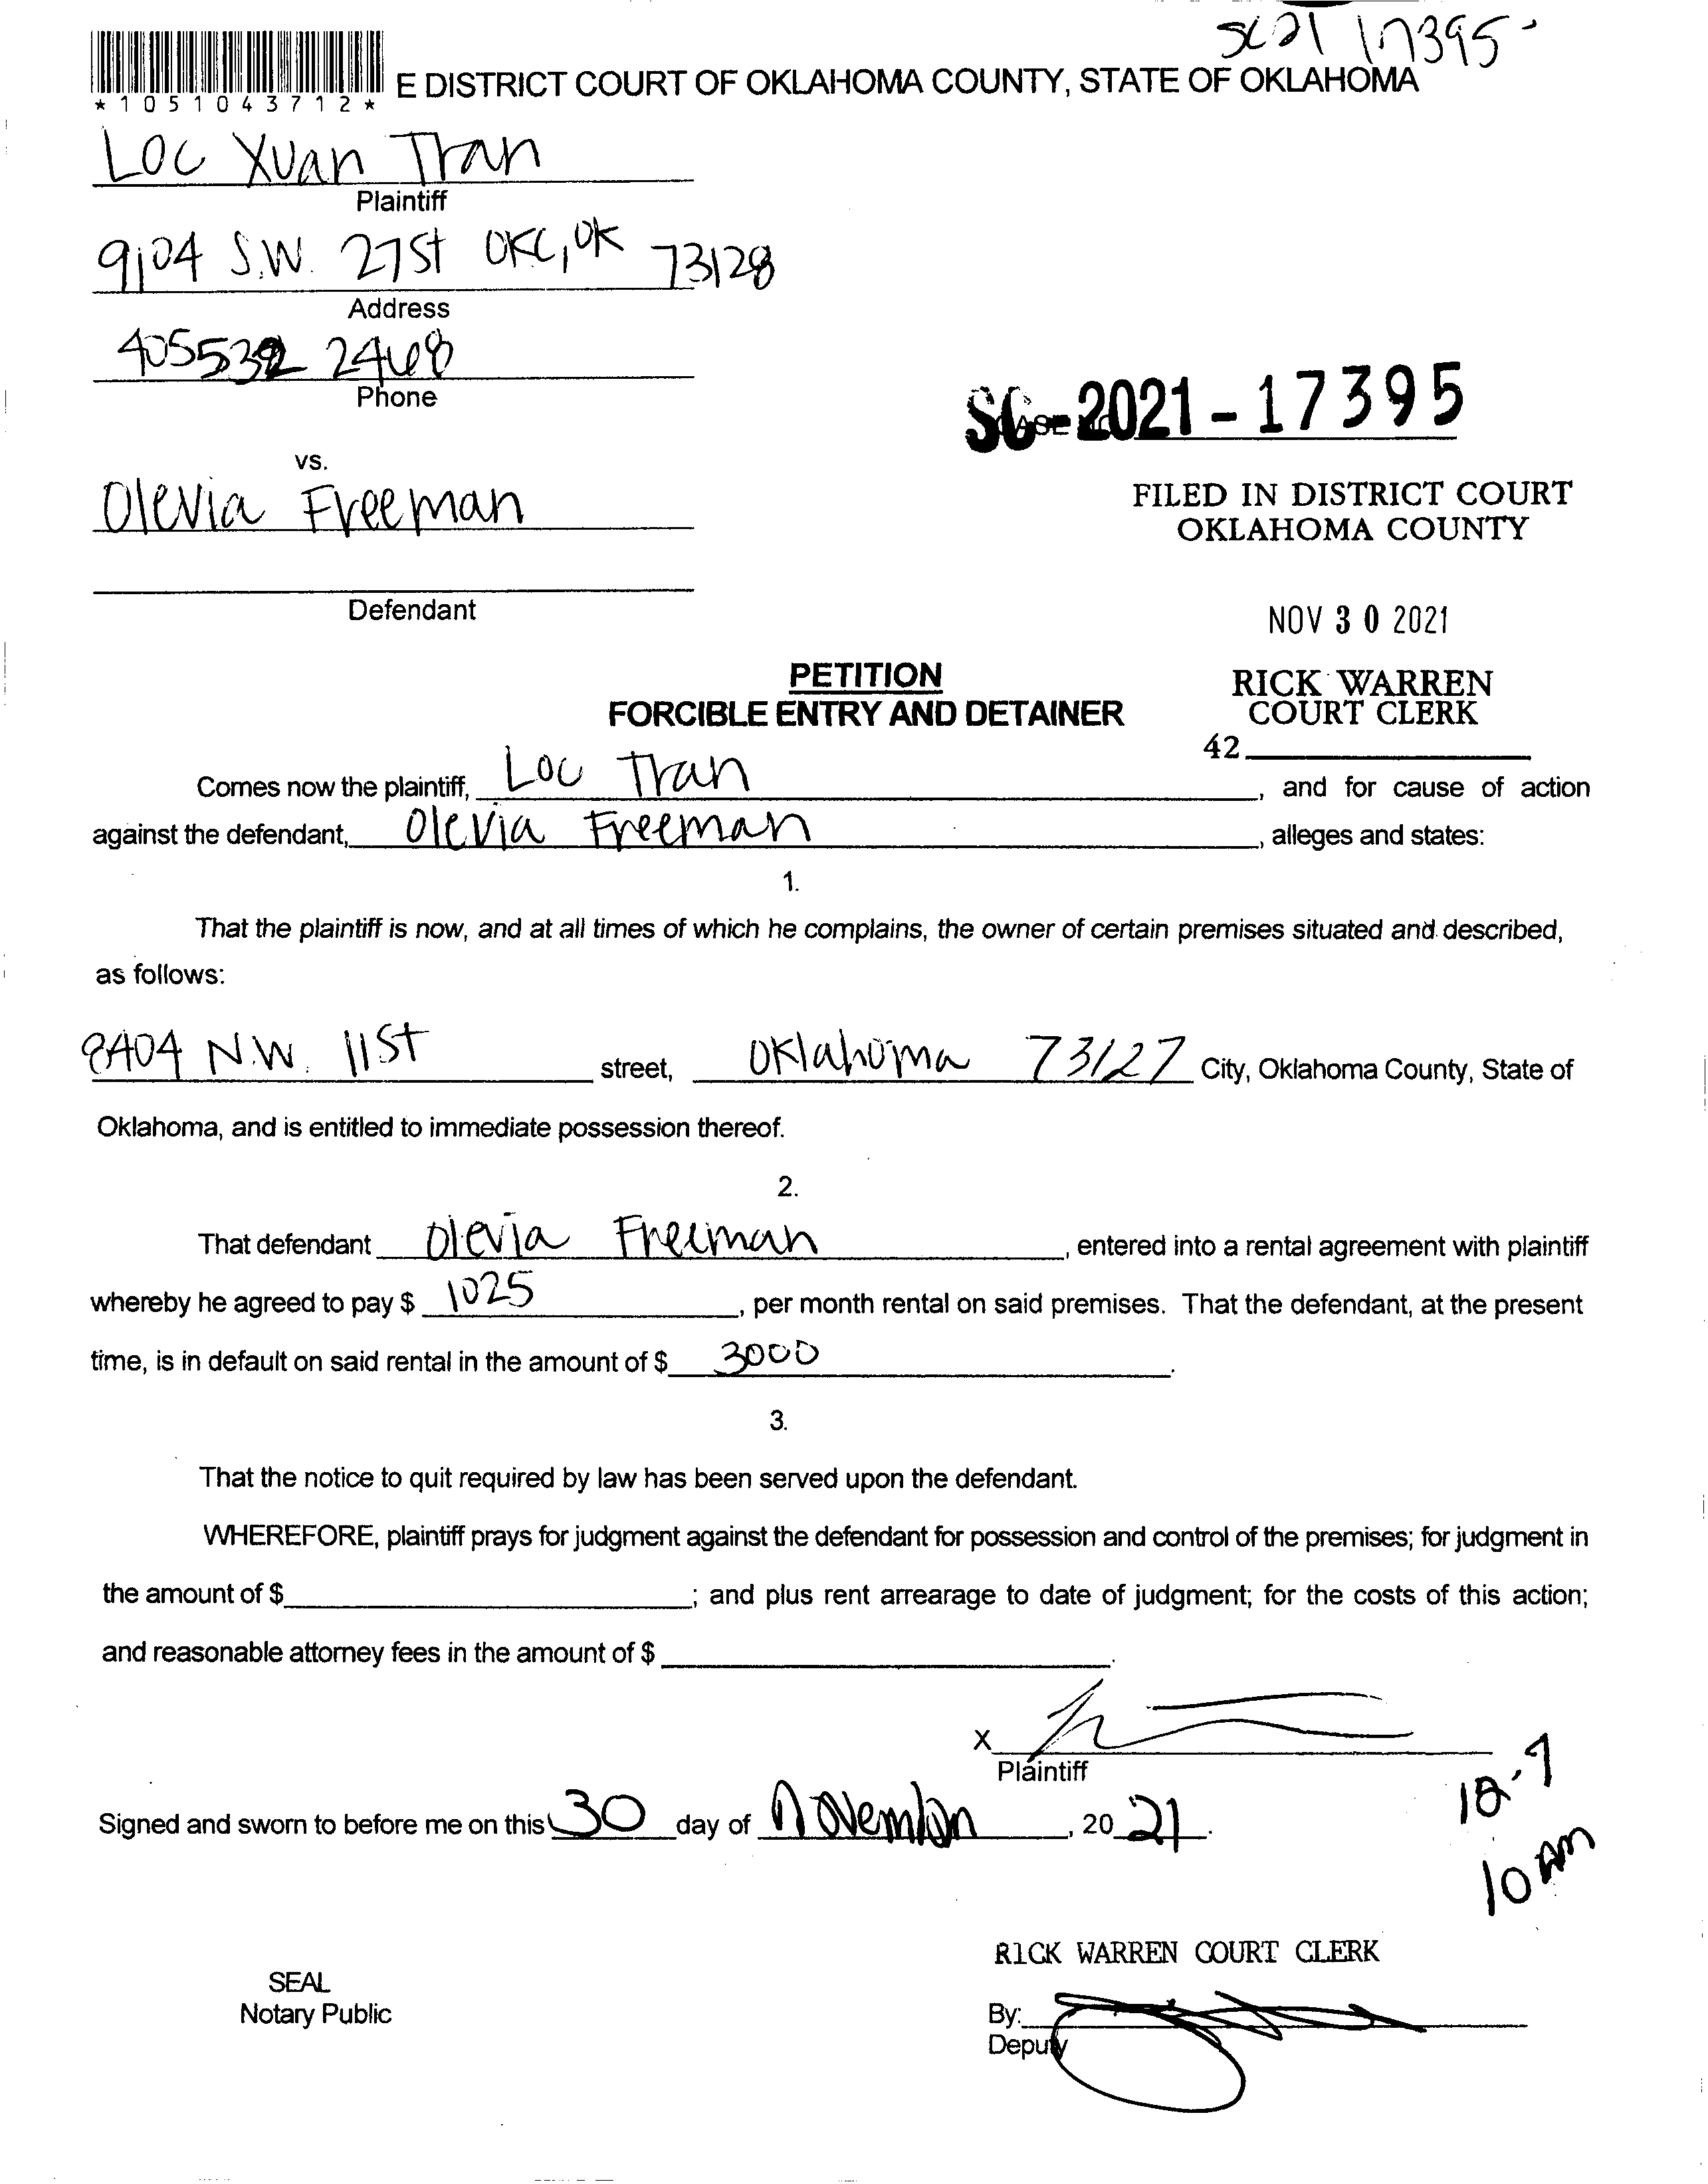 SC21 17395-
E DISTRICT COURT OF OKLAHOMA COUNTY, STATE OF OKLAHOMA
*1051043712*
Loc Xuan Tran
Plaintiff
9104 S.W. 27St OKC, OK 73128
Address
405532 2468
Phone
SC-2021-17395
vs.
Olevia Freeman
FILED IN DISTRICT COURT
OKLAHOMA COUNTY
Defendant
NOV 30 2021
PETITION
FORCIBLE ENTRY AND DETAINER
RICK WARREN
COURT CLERK
42
Comes now the plaintiff, Loc Tran, and for cause of action
against the defendant, Olevia Freeman, alleges and states:
1.
That the plaintiff is now, and at all times of which he complains, the owner of certain premises situated and described,
as follows:
8404 N.W. 11St street, Oklahoma 73127 City, Oklahoma County, State of
Oklahoma, and is entitled to immediate possession thereof.
2.
That defendant Olevia Freeman, entered into a rental agreement with plaintiff
whereby he agreed to pay $ 1025, per month rental on said premises. That the defendant, at the present
time, is in default on said rental in the amount of $ 3000.
3.
That the notice to quit required by law has been served upon the defendant.
WHEREFORE, plaintiff prays for judgment against the defendant for possession and control of the premises; for judgment in
the amount of $; and plus rent arrearage to date of judgment; for the costs of this action;
and reasonable attorney fees in the amount of $.
X
Plaintiff
Signed and sworn to before me on this 30 day of November, 2021.
12-9
10 AM
RICK WARREN COURT CLERK
SEAL
Notary Public
By:
Deputy